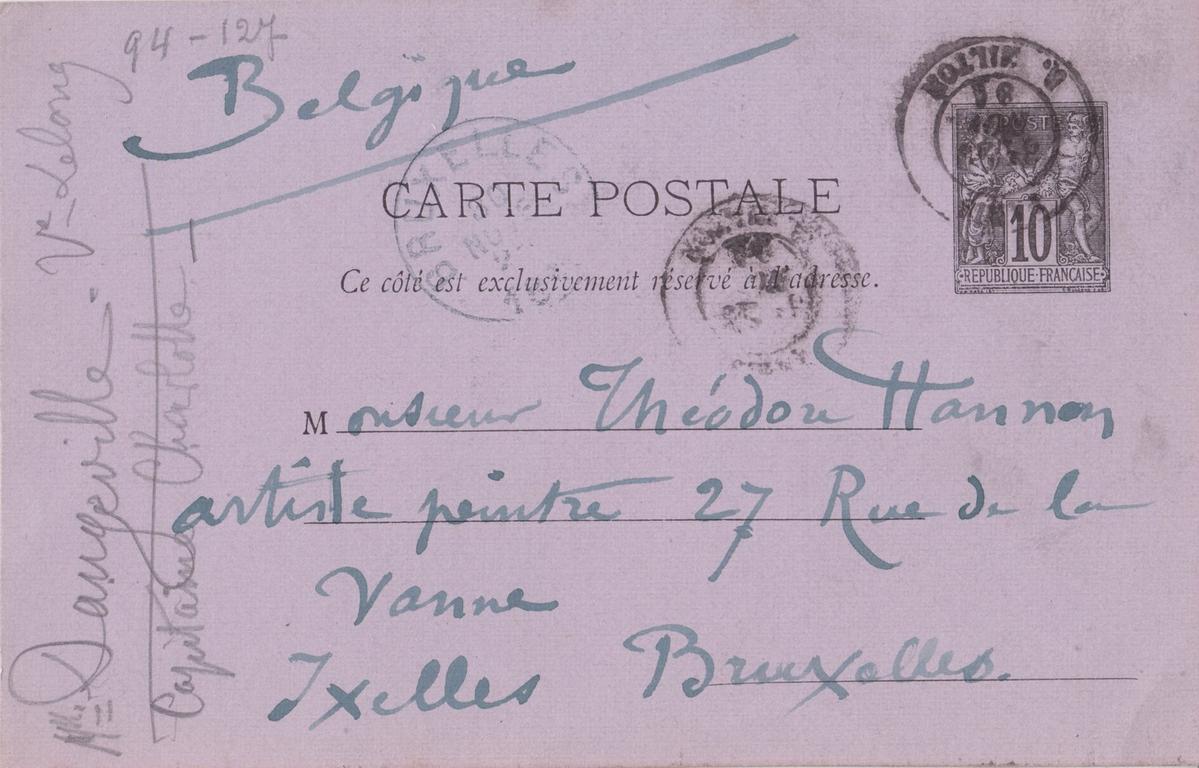 94-127
Belgique
BRUXELLES
CARTE POSTALE
Ce côté est exclusivement réservé à l'adresse.
R. MILTON
POSTE
10
REPUBLIQUE FRANÇAISE
Monsieur Théodore Hannon
artiste peintre 27 Rue de la
Vanne
Ixelles Bruxelles.
Mlle Dangeville - Ve Lelong
Capitaine Charlotte -